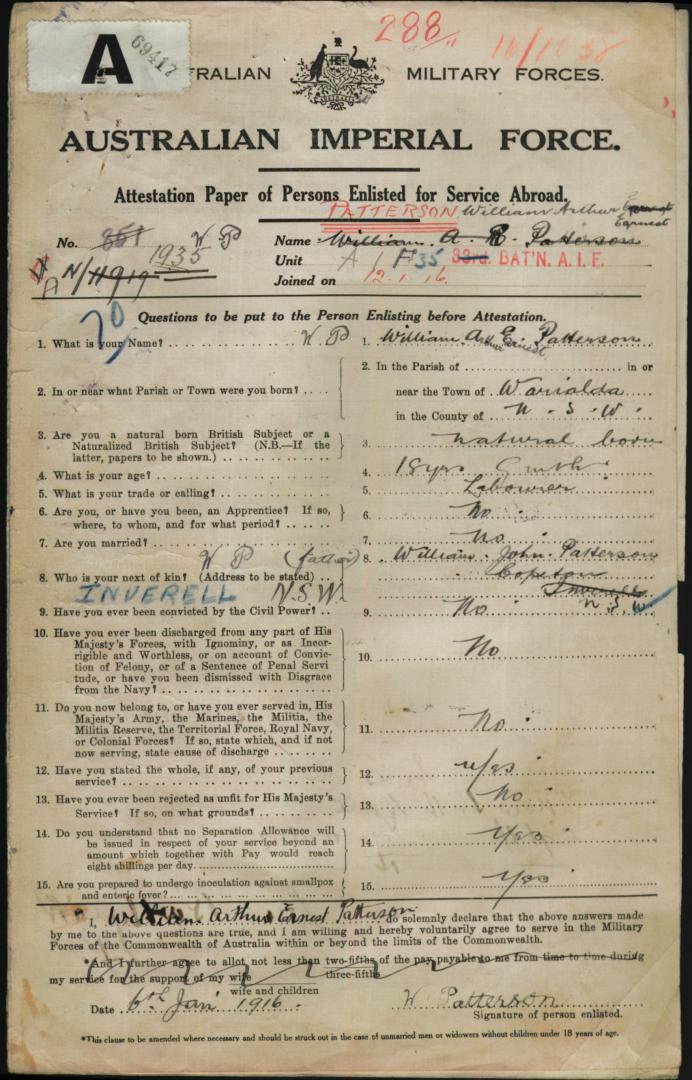 288
A
69417
AUSTRALIAN MILITARY FORCES.
AUSTRALIAN IMPERIAL FORCE.
Attestation Paper of Persons Enlisted for Service Abroad.
PATTERSON William Arthur Earnest
No. 351 1935 W P
Name William A. E. Patterson
Unit A F35 33rd. BAT'N. A.I.F.
Joined on 12.1.16.
N/11919
70
Questions to be put to the Person Enlisting before Attestation.
1. What is your Name? W P
1. William Arthur Ernest Patterson
2. In or near what Parish or Town were you born?
2. In the Parish of in or
near the Town of Warialda
in the County of N.S.W.
3. Are you a natural born British Subject or a
Naturalized British Subject? (N.B.—If the
latter, papers to be shown.)
3. natural born
4. What is your age?
4. 18 yrs
5. What is your trade or calling?
5. Labourer
6. Are you, or have you been, an Apprentice? If so,
where, to whom, and for what period?
6. No
7. Are you married?
7. No
W P (father)
8. Who is your next of kin? (Address to be stated)
8. William John Patterson
Copeton
Inverell
N.S.W
INVERELL N.S.W.
9. Have you ever been convicted by the Civil Power?
9. No
10. Have you ever been discharged from any part of His
Majesty's Forces, with Ignominy, or as Incor-
rigible and Worthless, or on account of Convic-
tion of Felony, or of a Sentence of Penal Servi
tude, or have you been dismissed with Disgrace
from the Navy?
10. No
11. Do you now belong to, or have you ever served in, His
Majesty's Army, the Marines, the Militia, the
Militia Reserve, the Territorial Force, Royal Navy,
or Colonial Forces? If so, state which, and if not
now serving, state cause of discharge
11. No
12. Have you stated the whole, if any, of your previous
service?
12. yes
13. Have you ever been rejected as unfit for His Majesty's
Service? If so, on what grounds?
13. No
14. Do you understand that no Separation Allowance will
be issued in respect of your service beyond an
amount which together with Pay would reach
eight shillings per day.
14. Yes
15. Are you prepared to undergo inoculation against smallpox
and enteric fever?
15. Yes
I, William Arthur Ernest Patterson do solemnly declare that the above answers made
by me to the above questions are true, and I am willing and hereby voluntarily agree to serve in the Military
Forces of the Commonwealth of Australia within or beyond the limits of the Commonwealth.
*And I further agree to allot not less than two-fifths of the pay payable to me from time to time during
three-fifths
my service for the support of my wife
wife and children
Date 6th Jan 1916.
W Patterson
Signature of person enlisted.
*This clause to be amended where necessary and should be struck out in the case of unmarried men or widowers without children under 18 years of age.